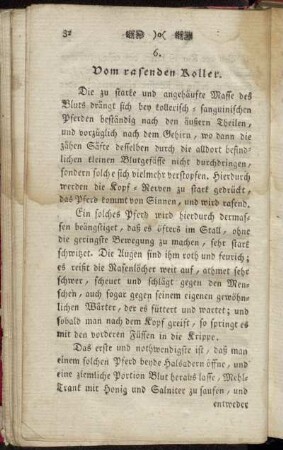 32
)o(
6.
Vom rasenden Koller.
Die zu starke und angehäufte Masse des
Bluts drängt sich bey kollerisch-sanguinischen
Pferden beständig nach den äußern Theilen,
und vorzüglich nach dem Gehirn, wo dann die
zähen Säfte desselben durch die alldort befind-
lichen kleinen Blutgefässe nicht durchdringen,
sondern solche sich vielmehr verstopfen. Hierdurch
werden die Kopf-Nerven zu stark gedrückt,
das Pferd kommt von Sinnen, und wird rasend.
Ein solches Pferd wird hierdurch dermas-
sen beängstiget, daß es öfters im Stall, ohne
die geringste Bewegung zu machen, sehr stark
schwitzet. Die Augen sind ihm roth und feurich;
es reist die Nasenlöcher weit auf, athmet sehr
schwer, scheuet und schlägt gegen den Men-
schen, auch sogar gegen seinem eigenen gewöhn-
lichen Wärter, der es füttert und wartet; und
sobald man nach dem Kopf greift, so springt es
mit den vorderen Füssen in die Krippe.
Das erste und nothwendigste ist, daß man
einem solchen Pferd beyde Halsadern öffne, und
eine ziemliche Portion Blut heraus lasse, Mehl-
Trank mit Honig und Salniter zu saufen, und
entweder